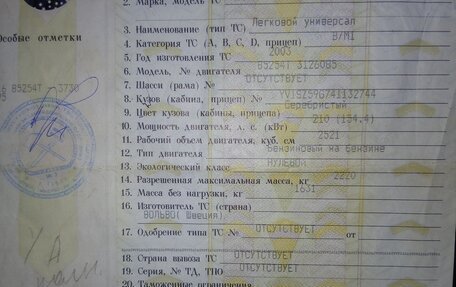 2. Марка, модель ТС
Легковой универсал
Особые отметки
3. Наименование (тип ТС)
B/M1
4. Категория ТС (A, B, C, D, прицеп)
2003
5. Год изготовления ТС
B5254T 3126085
6. Модель, № двигателя
ОТСУТСТВУЕТ
7. Шасси (рама) №
YV1SZ59G741132744
B5254T 3730
8. Кузов (кабина, прицеп) №
Серебристый
9. Цвет кузова (кабины, прицепа)
210 (154.4)
10. Мощность двигателя, л. с. (кВт)
2521
11. Рабочий объем двигателя, куб. см
Бензиновый на бензине
12. Тип двигателя
НУЛЕВОЙ
13. Экологический класс
2220
14. Разрешенная максимальная масса, кг
1631
15. Масса без нагрузки, кг
16. Изготовитель ТС (страна)
ВОЛЬВО( Швеция).
17. Одобрение типа ТС №
ОТСУТСТВУЕТ
от
18. Страна вывоза ТС
ОТСУТСТВУЕТ
19. Серия, № ТД, ТПО
ОТСУТСТВУЕТ
20. Таможенные ограничения